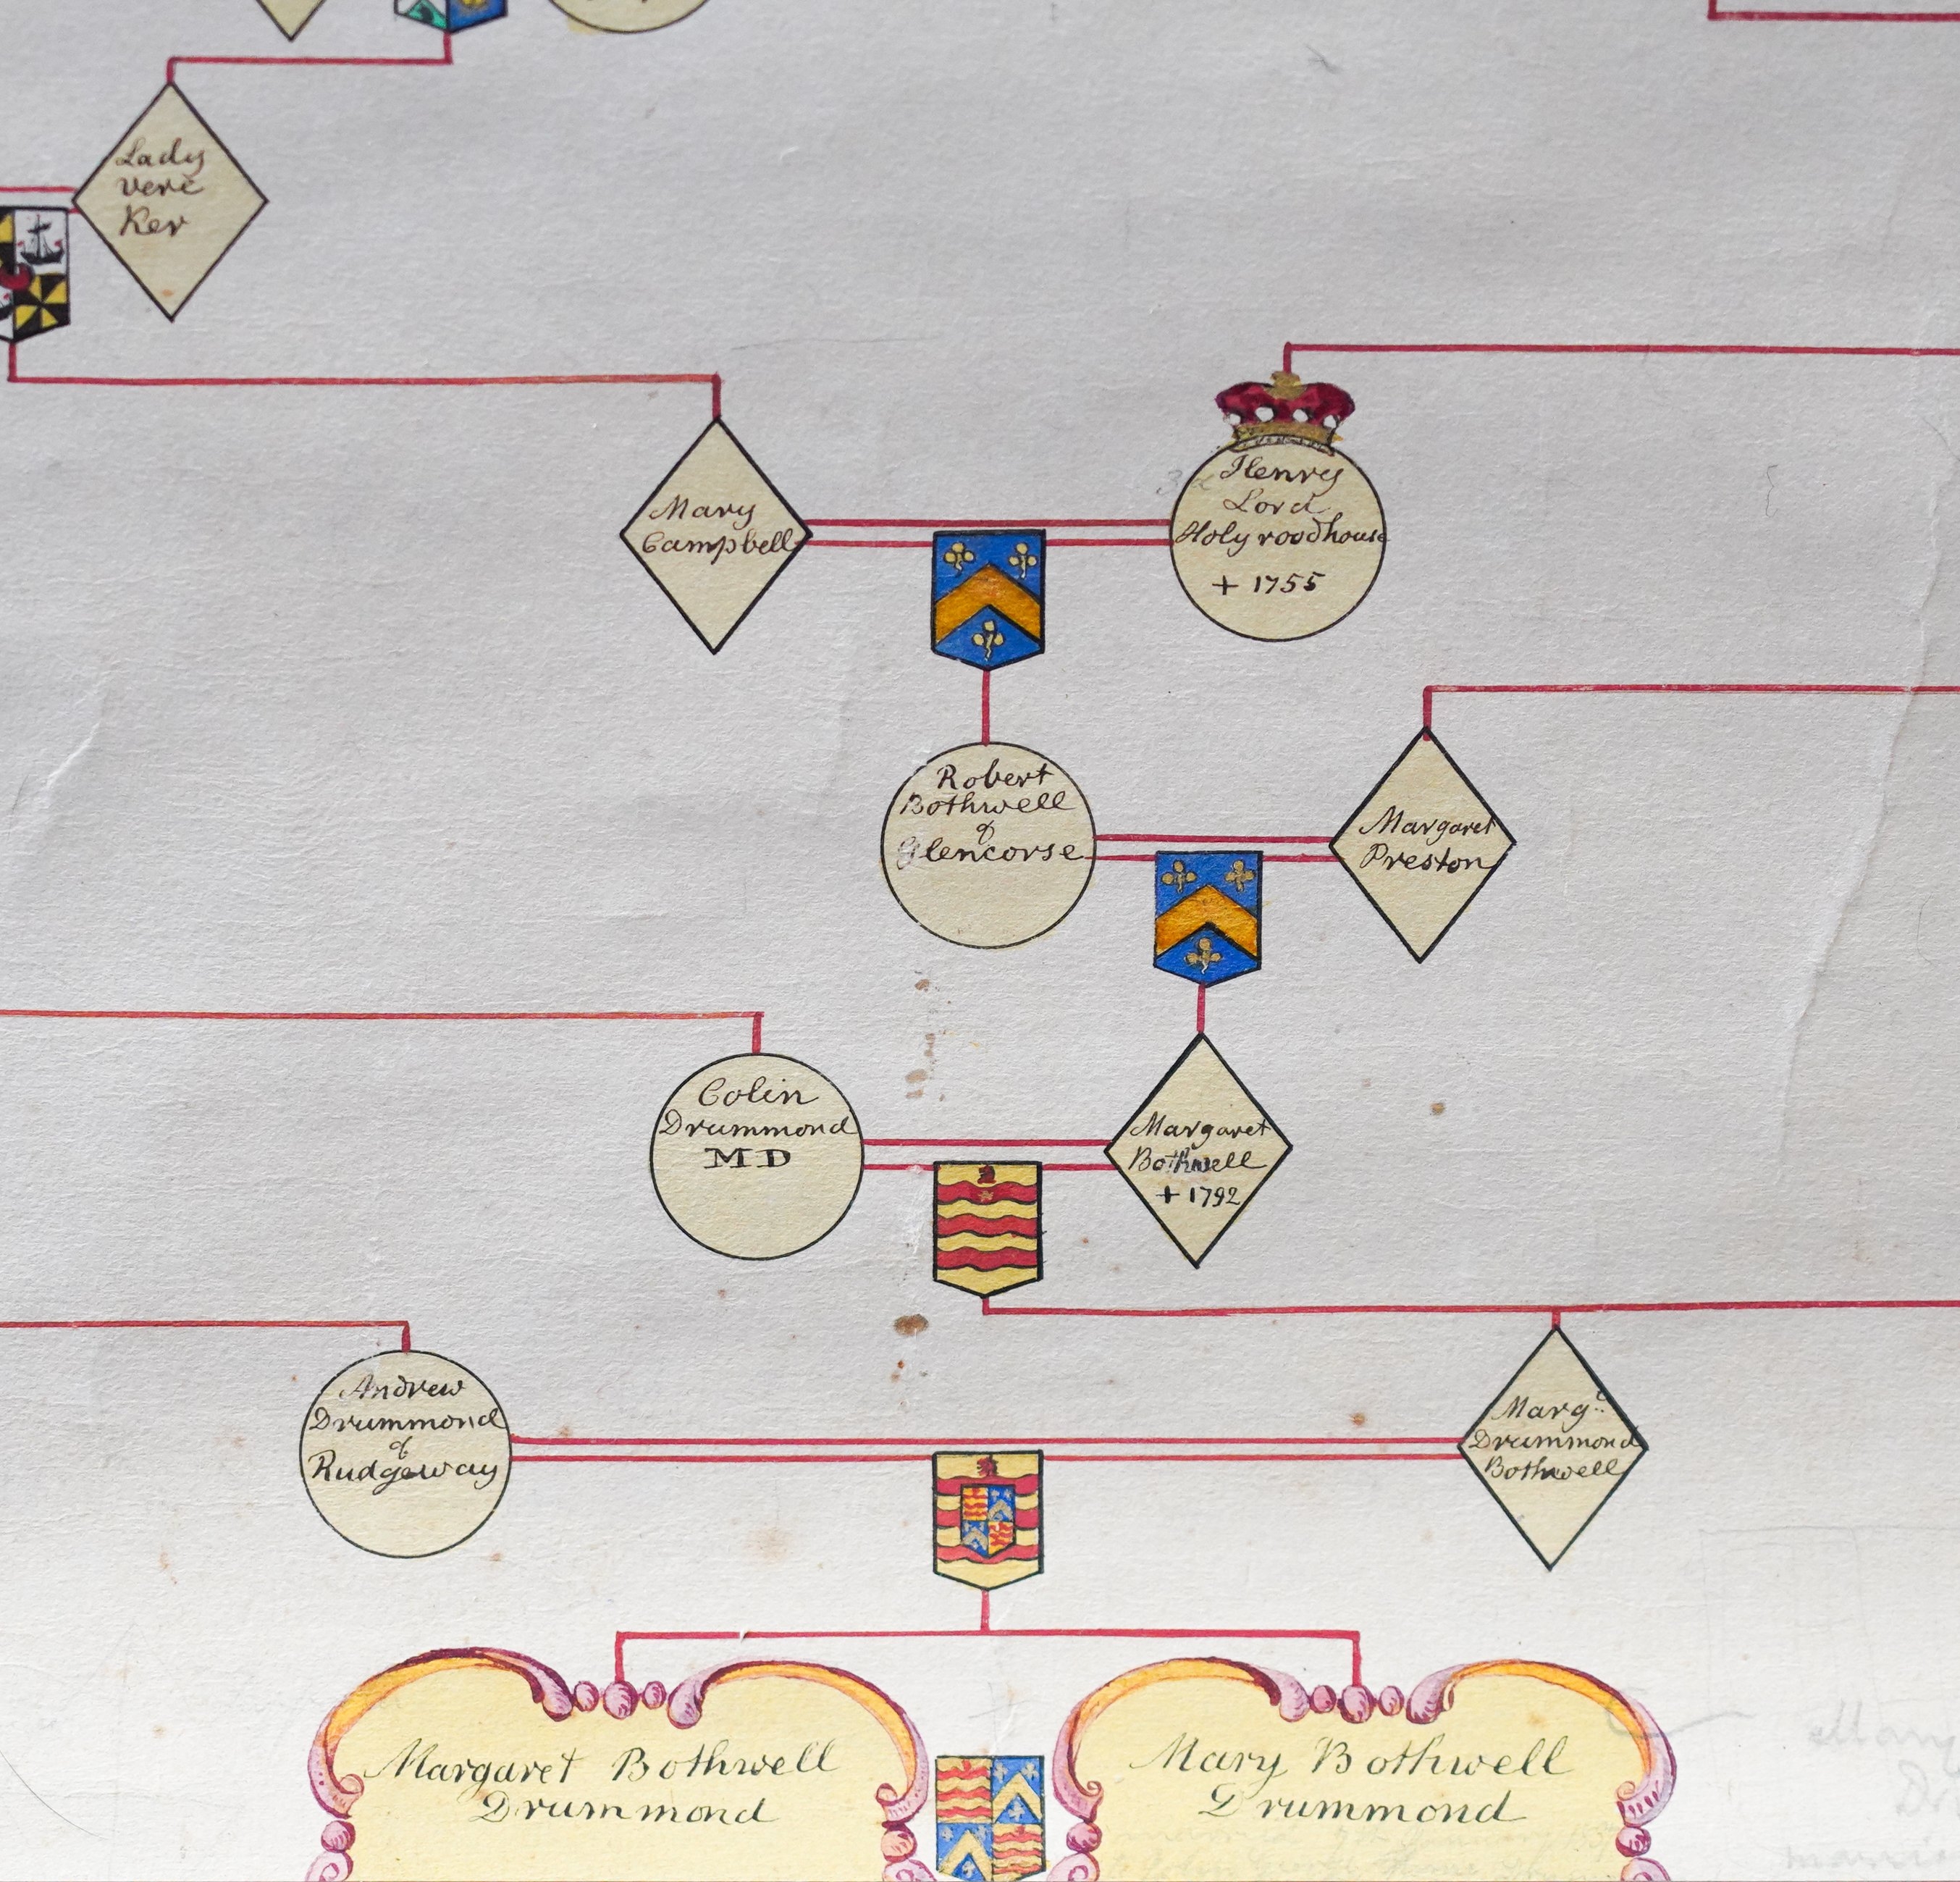 Lady
Vere
Ker
Mary
Campbell
Henry
Lord
Holyroodhouse
+ 1755
Robert
Bothwell
of
Glencorse
Margaret
Preston
Colin
Drummond
MD
Margaret
Bothwell
+ 1792
Andrew
Drummond
of
Rudgeway
Marg.t
Drummond
Bothwell
Margaret Bothwell
Drummond
Mary Bothwell
Drummond